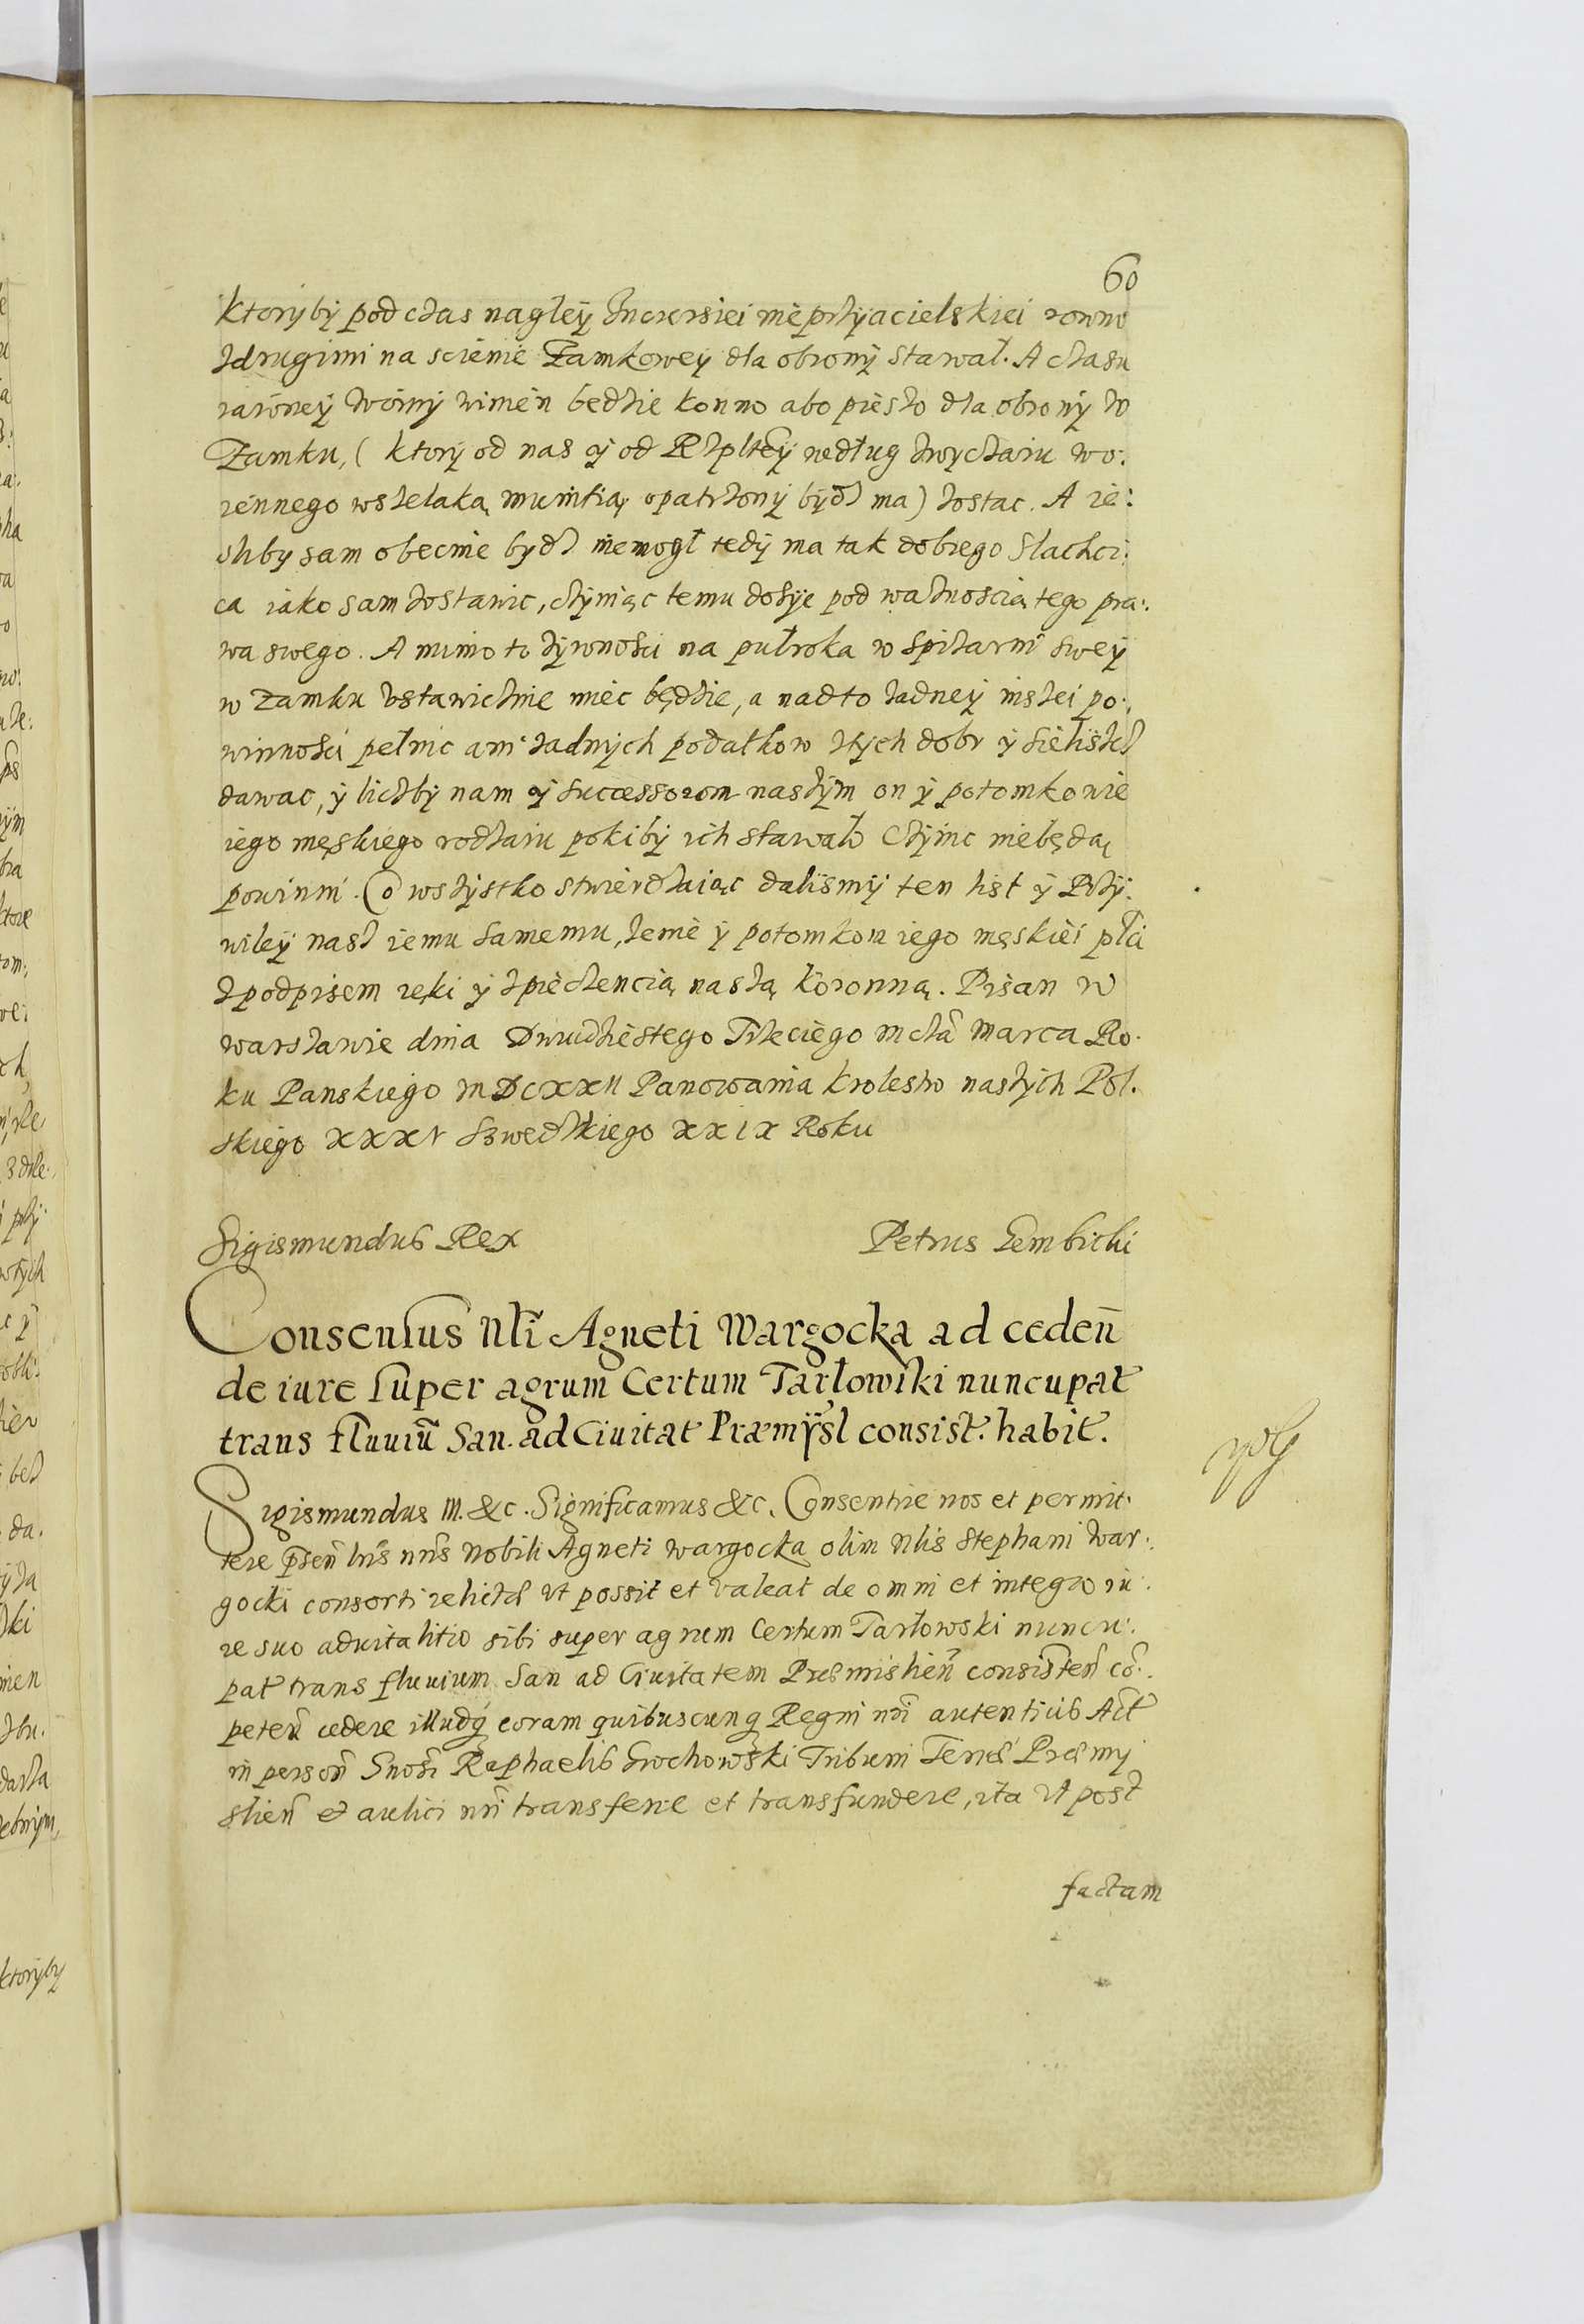 60
ktoryby podczas nagłey Incursiei nieprzyiacielskiei rowno
zdrugimi na scienie Zamkowey dla obrony stawał. A czasu
iawney woiny winien będzie konno abo pieszo dla obrony w
Zamku, ( ktory od nas y od Rzpltey według zwyczaiu wo:
iennego wszelaką munitią opatrzony bydz ma) zostac. A ie:
sliby sam obecnie bydz niemogł tedy ma tak dobrego slachci:
ca iako sam zostawic, czyniąc temu dosyc pod ważnoscią tego pra:
wa swego. A mimo to żywnosci na pułroka w spiżarni swey
w zamku ustawicznie miec będzie, a nadto żadney inszei po:
winnosci pełnic ani żadnych podatkow ztych dobr y sieliszcz
dawac, y liczby nam y successorom naszym on y potomkowie
iego męskiego rodzaiu pokiby ich stawało czynic niebędą
powinni. Co wszystko stwierdzaiąc dalismy ten list y Przy:
wiley nasz iemu samemu, żenie y potomkom iego męskiei płci
zpodpisem ręki y zpieczencią naszą koronną. Pisan w
warszawie dnia Dwudziestego Trzeciego mcã Marca Ro.
ku Panskiego MDCXXII Panowania krolestw naszych Pol.
skiego XXXV Szwedzkiego XXIX Roku
Sigismundus Rex Petrus Gembicki
Consensus Nli Agneti Wargocka ad ceden̄
de iure super agrum Certum Tarłowski nuncupat
trans fluuiū San. ad Ciuitat Præmysl consist. habit.
Sigismundus III. &c. Significamus &c. Consentire nos et permit:
tere p̄sen̄ lris nris Nobili Agneti wargocka olim Nlis Stephani War:
gocki consorti relictæ ut possit et valeat de omni et integro iu:
re suo aduitalitio sibi super agrum Certum Tarłowski nuncu:
pat trans fluuium San ad Ciuitatem Præmislien̄ consisten̄ cō:
peten̄ cedere illudq̨ coram quibuscunq̨ Regni nri autenticis Act
in person̄ Gnosi Raphaelis Grochowski Tribuni Terræ Præmy
slien̄ et aulici nri transferre et transfundere, ita ut post
factam